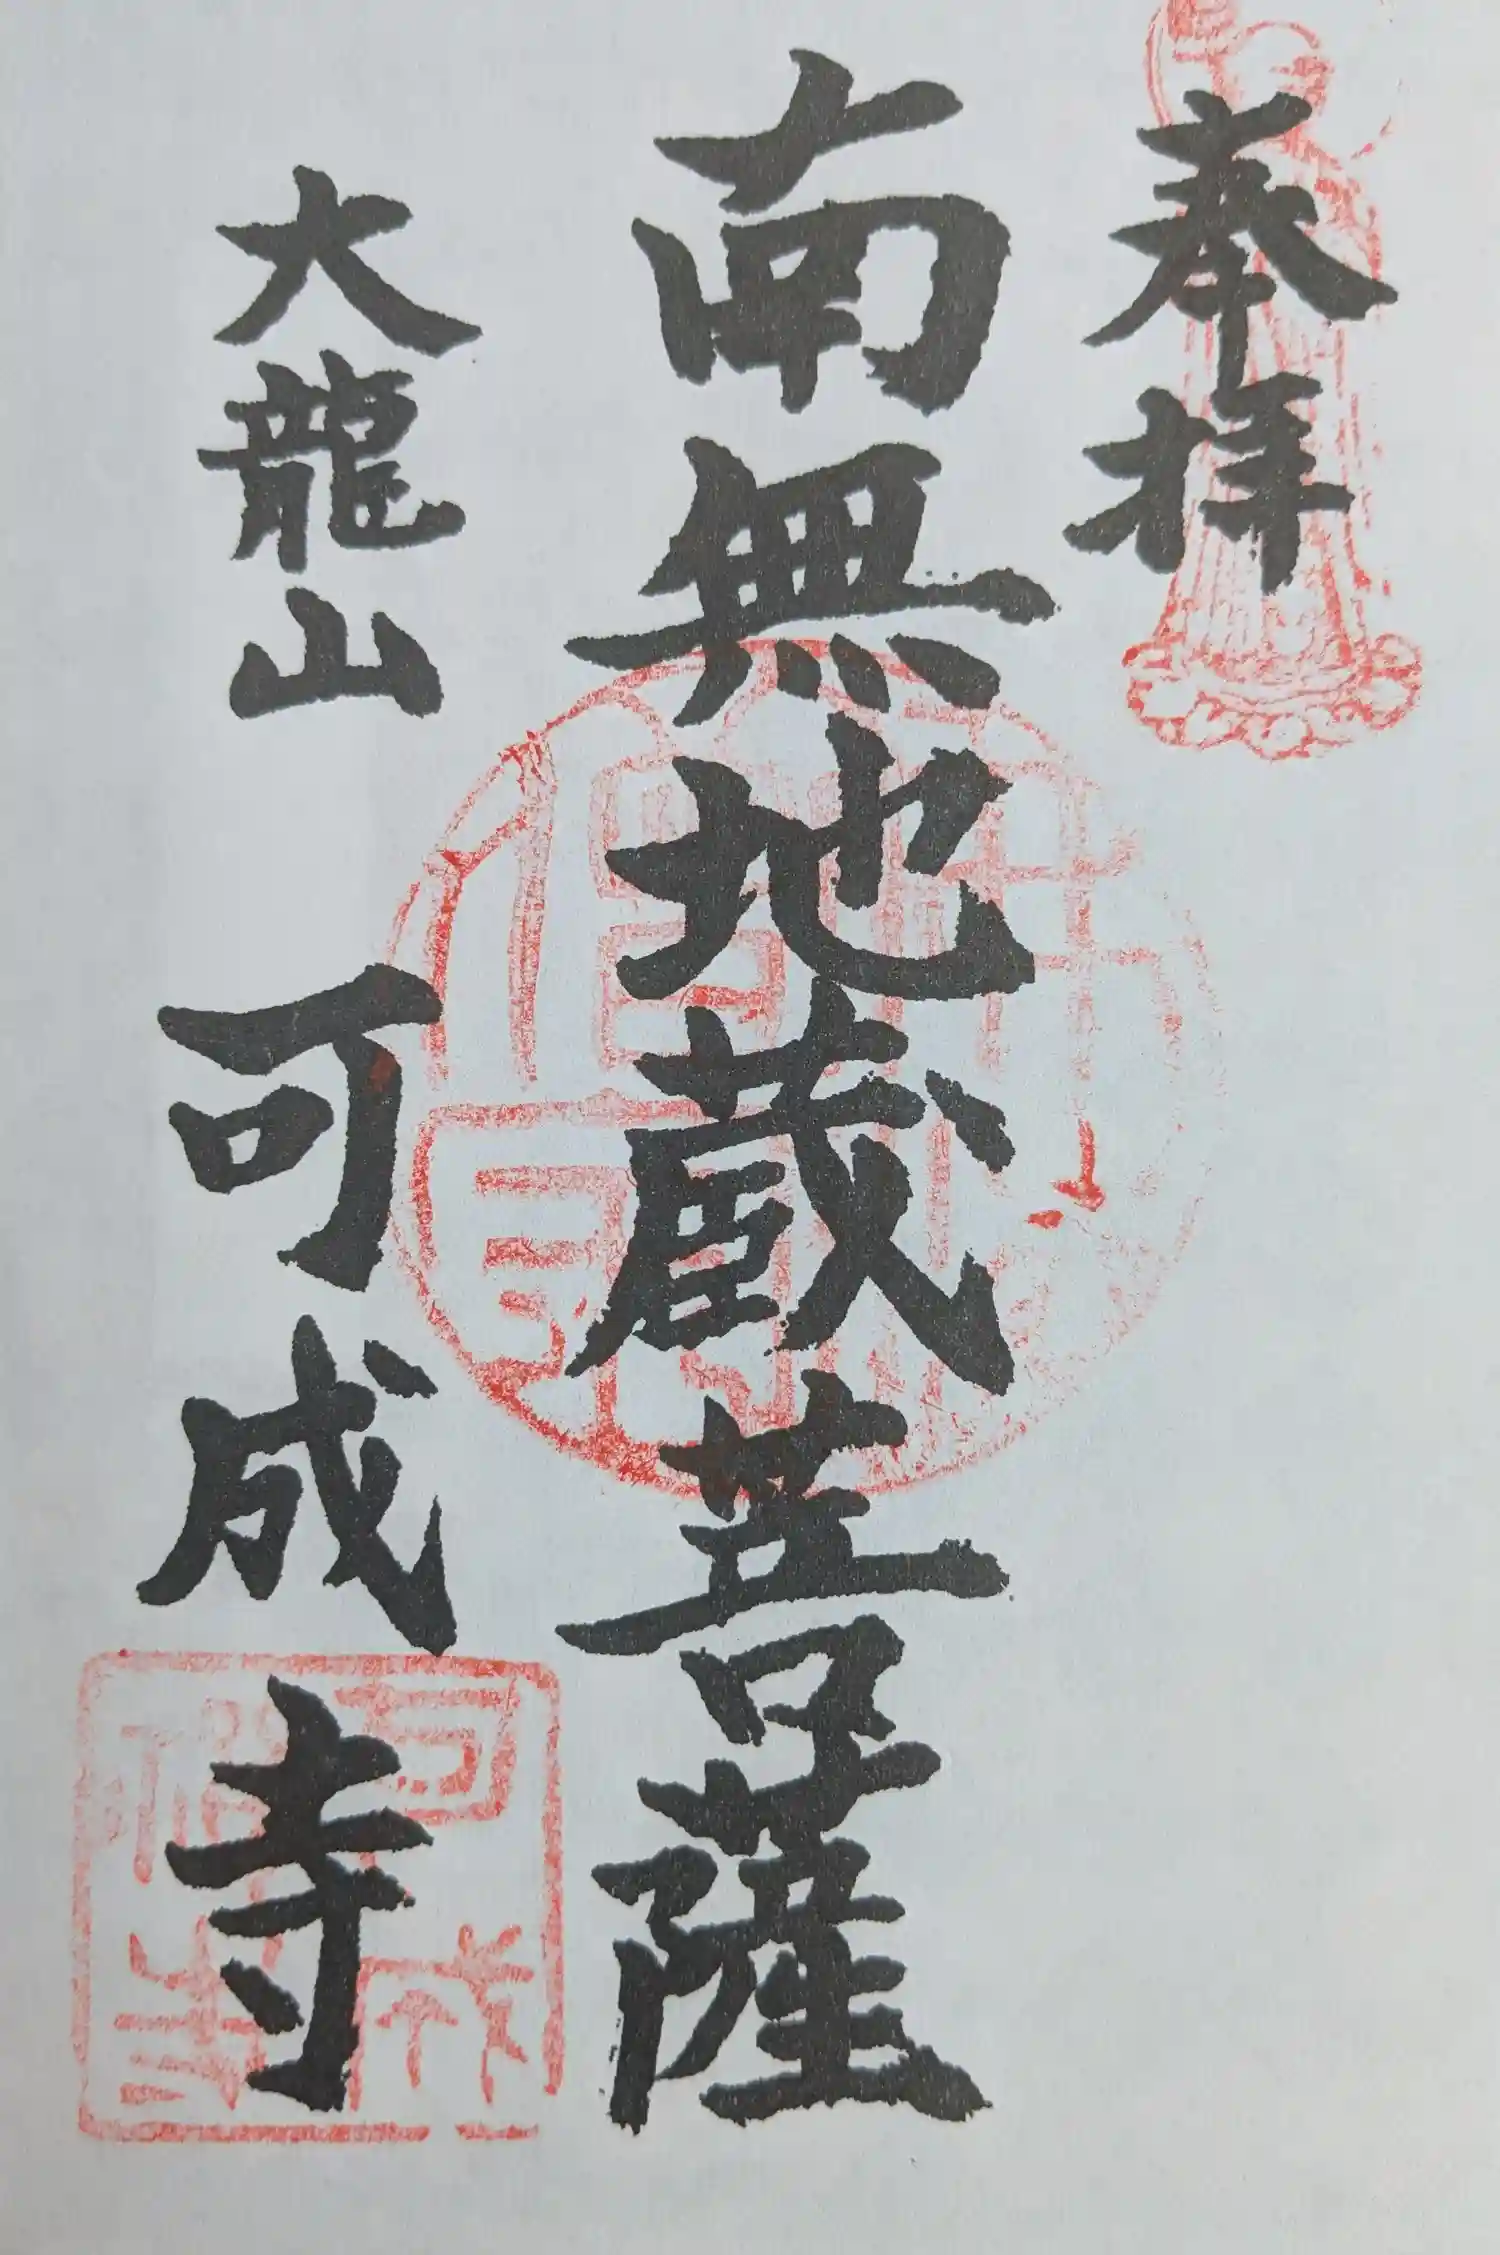 奉拝
南無地蔵菩薩
大龍山
可成寺